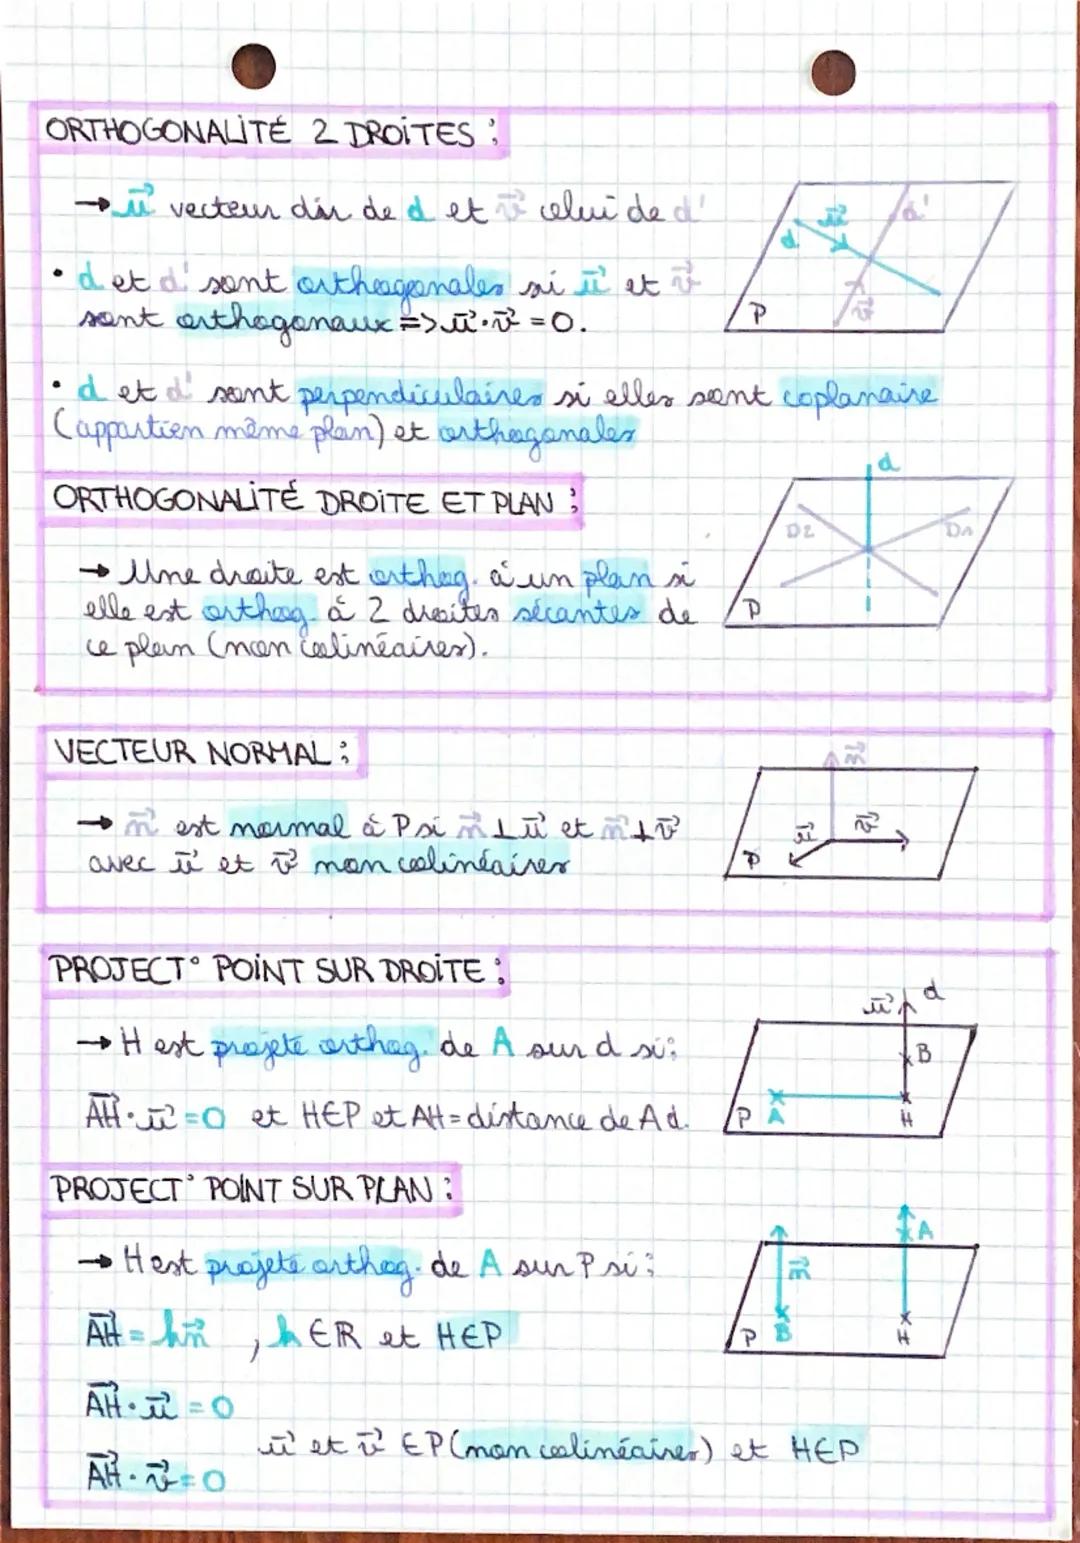 ORTHOGONALITÉ 2 DROITES :
→ u⃗ vecteur dir de d et v⃗ celui de d'
• d et d' sont orthogonales si u⃗ et v⃗
sont orthogonaux => u⃗·v⃗ = 0.
d
u⃗
d'
v⃗
P
• d et d' sont perpendiculaires si elles sont coplanaire
(appartien même plan) et orthogonales
ORTHOGONALITÉ DROITE ET PLAN :
→ Une droite est orthog. à un plan si
elle est orthog. à 2 droites sécantes de
ce plan (non colinéaires).
d
D2
D1
P
VECTEUR NORMAL :
→ n⃗ est normal à P si n⃗ ⊥ u⃗ et n⃗ ⊥ v⃗
avec u⃗ et v⃗ non colinéaires
n⃗
u⃗
v⃗
P
PROJECT° POINT SUR DROITE :
→ H est projeté orthog. de A sur d si :
AH⃗·u⃗ = 0 et H∈P et AH = distance de A d.
u⃗
d
B
P
A
H
PROJECT° POINT SUR PLAN :
→ H est projeté orthog. de A sur P si :
AH⃗ = kn⃗ , k ∈ ℝ et H∈P
AH⃗·u⃗ = 0
u⃗ et v⃗ ∈ P (non colinéaires) et H∈P
AH⃗·v⃗ = 0
A
n⃗
P
B
H